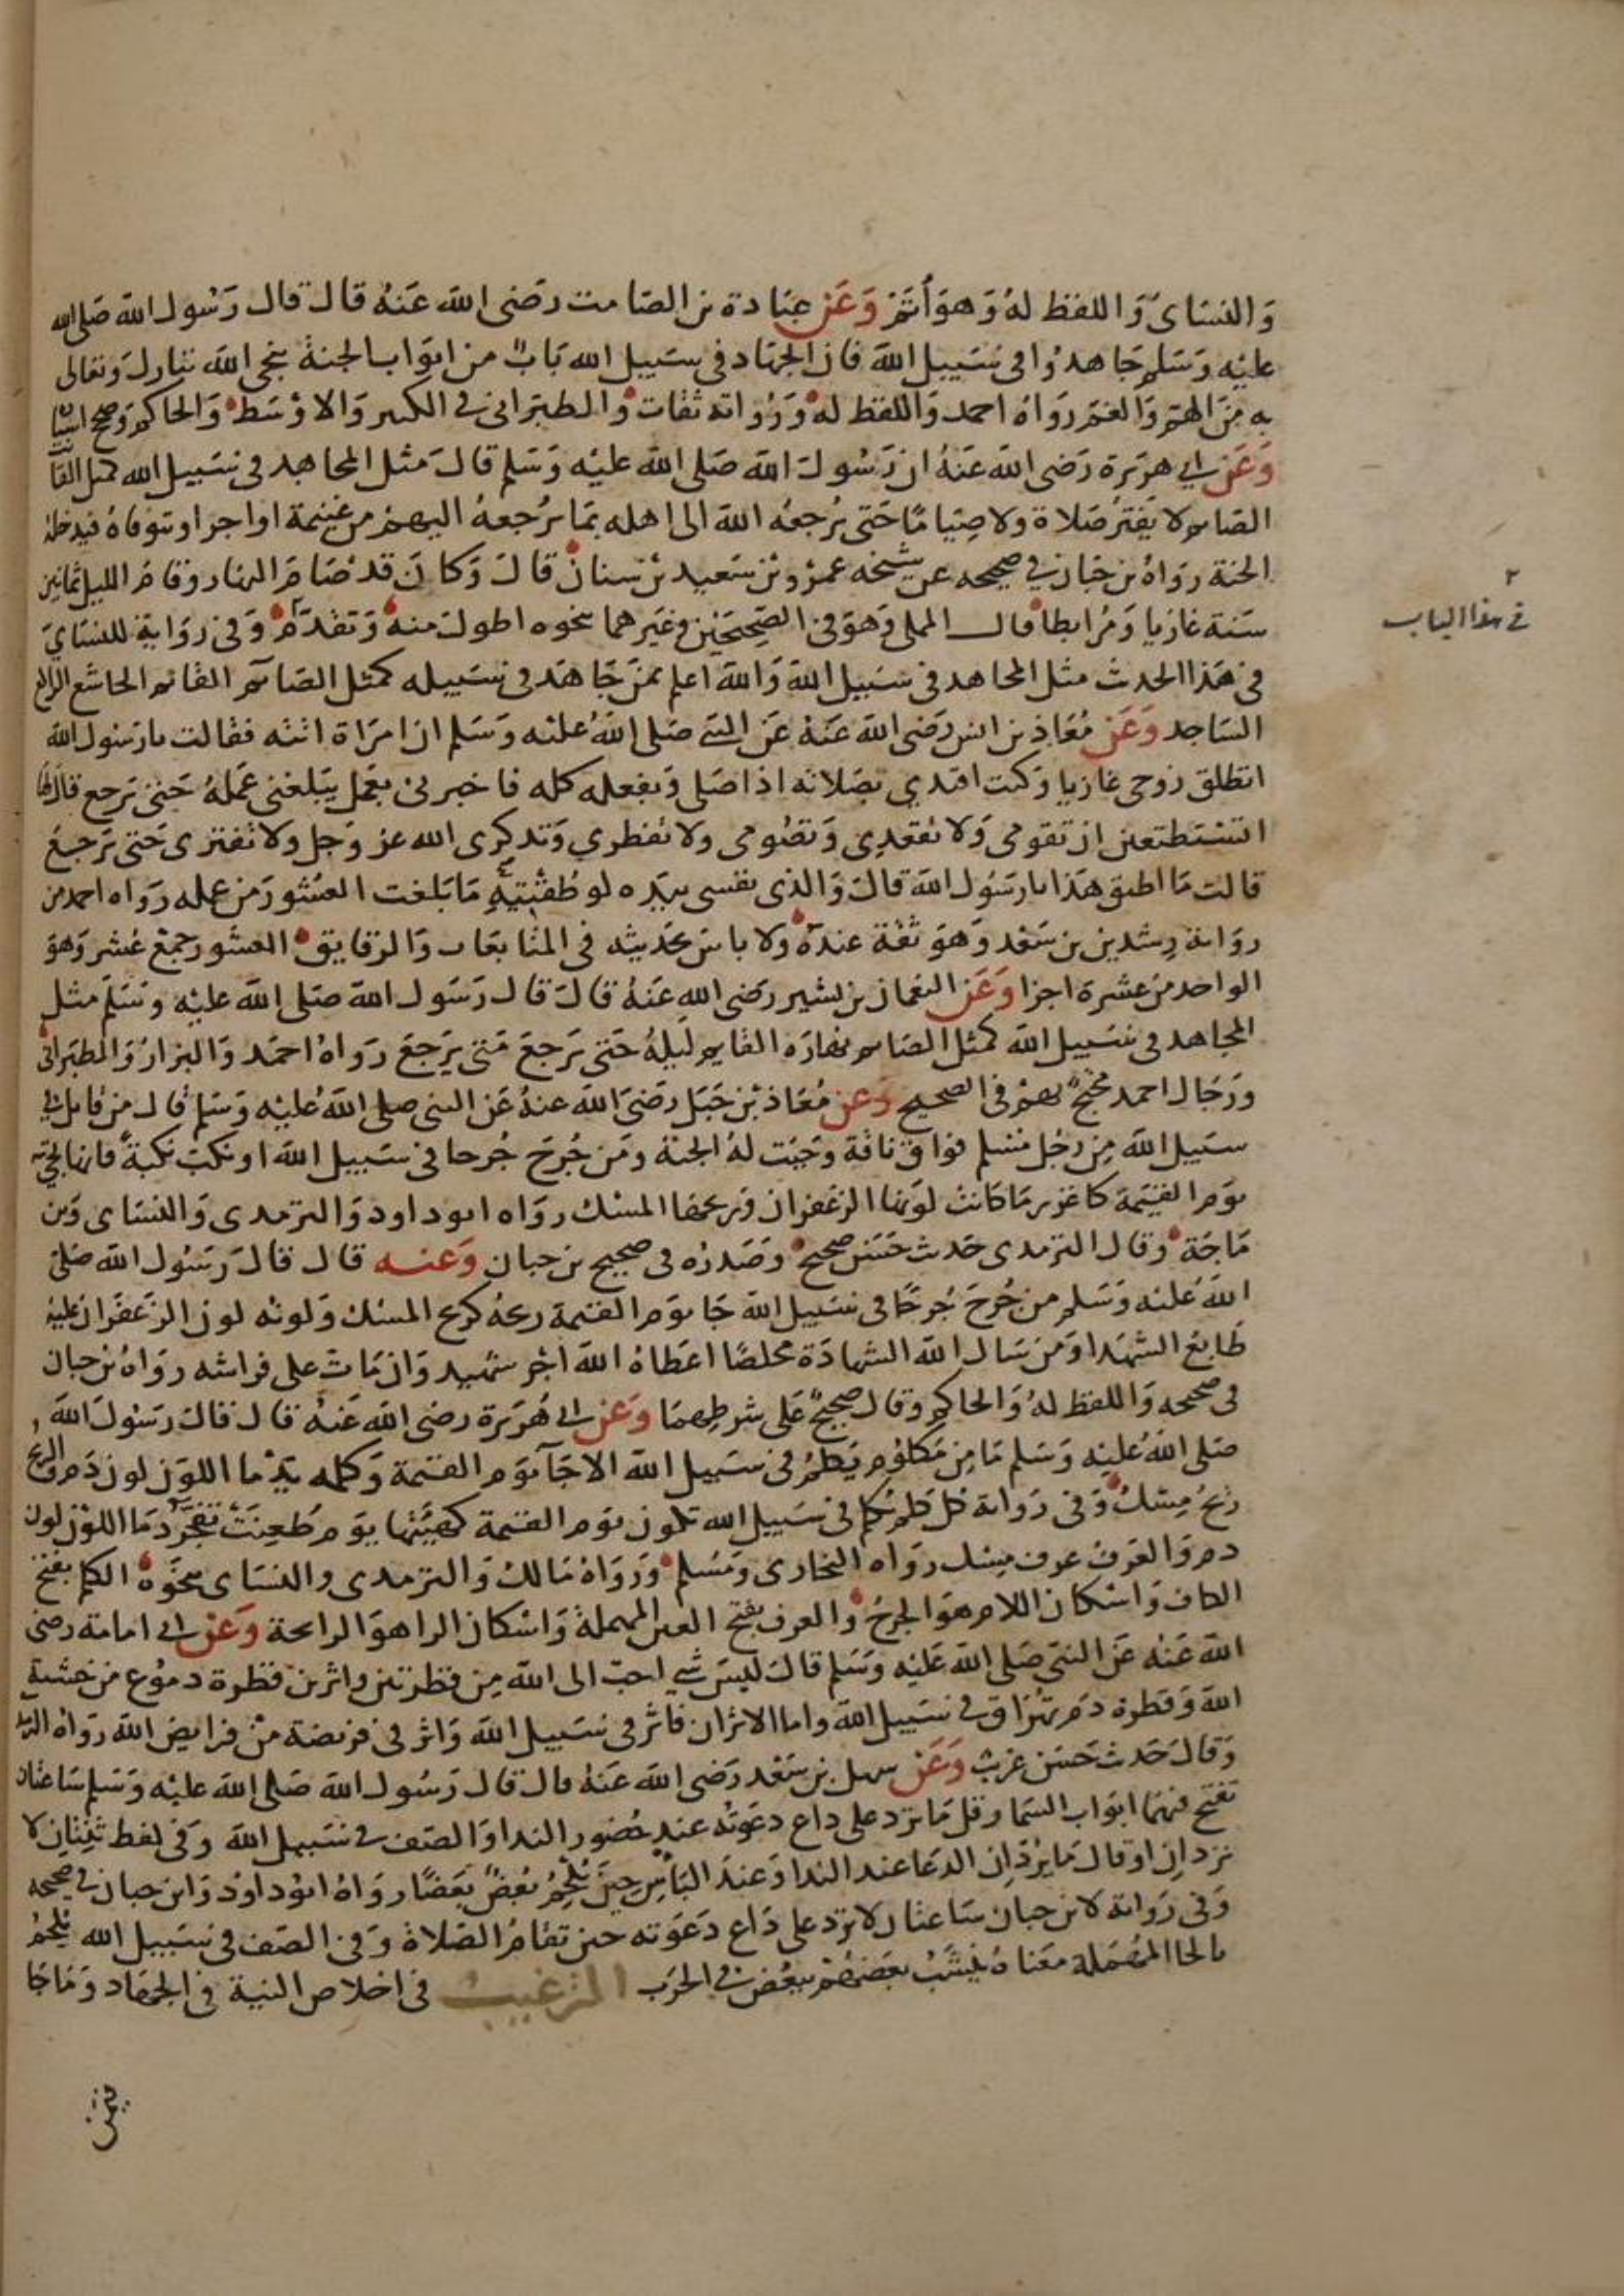 وَالنسَاى وَاللفظ لهُ وَهوَ أتَمّ وَعَن عبَادة بن الصَامت رضَى الله عَنهُ قال قال رَسُول الله صَلى الله
عليْه وَسَلم جَاهدُوا فى سَبيل الله فان الجهَاد فى سَبيل الله بَابٌ من ابوَاب الجنة ينجى الله تبَارك وَتعَالى
به مِنَ الهمّ وَالغمّ رَوَاهُ احمد وَاللفظ له وَرُوَاته ثقات وَالطبَرانى فى الكبير وَالاوْسَط وَالحاكم وَصحح اسنا
وَعَن ابى هرَيرة رَضى الله عَنهُ ان رَسُول الله صَلى الله عليْه وَسَلم قالَ مَثل المجاهد فى سَبيل الله كمثل القانت
الصَايم لا يَفترُ صَلاة ولا صِيَامًا حَتى يُرجعُه الله الى اهله بمَا يُرجعهُ اليهم من غنيمة او اجر او يتوفاهُ فيدخلهُ
الجنة رَوَاهُ بن حبَان فى صحيحه عن شيخه عمرْو بْن سَعيد بْن سنان قالَ وَكانَ قد صَامَ النهار وقامَ الليل ثمانين
سَنة غازيا وَمُرابطا قال المملى وَهوَ فى الصَحِيحَيْن وغيَرهما بنحوه اطول منهُ وَتقدّمَ وَفى روَاية للنسَاىَ
فى هَذا الحدث مثل المجاهد فى سَبيل الله وَالله اعلم بمَن جَاهَد فى سَبيله كمثل الصَايم القايم الخاشع الراكع
السَاجد وَعَن مُعَاذ بن انس رَضى الله عَنهُ عَن النبى صَلى اللهُ عليْه وَسَلم ان امرَاة اتته فقالت يا رَسُول الله
انطلق زوجى غازيا وَكنت اقتدي بصَلاته اذا صَلى وَبفعله كله فاخبرنى بعَمل يبَلغنى عَملهُ حَتى يَرجع قال لها
اتستَطيعين ان تقومى وَلا تقعُدِى وَتصُومى ولا تفطري وَتذكرى الله عز وَجل ولا تفترى حَتى يَرجعُ
قالت مَا اطيق هَذا يا رَسُول الله قالَ وَالذى نفسى بيَده لو طُقتِيْهِ مَا بَلغت العشُورَ من عمله رَوَاه احمد من
روَاية رِشدين بن سَعْد وَهوَ ثقة عندهُ ولا باس بحَديثه فى المتابعَات وَالرقايق العشُور جمعُ عُشر وَهوَ
الواحد من عشرة اجزا وَعَن النعمان بن بشير رَضى الله عَنهُ قالَ قال رَسُول الله صَلى الله عليْه وَسَلمَ مثل
المجاهد فى سَبيل الله كمثل الصَايم نهارَه القايم ليلهُ حَتى يَرجعَ مَتى يَرجعَ رَوَاهُ احمَد وَالبزارُ وَالطبَرانى
ورَجَال احمد محتجٌ بهمْ فى الصحيح وَعن مُعَاذ بْن جَبَل رَضىَ الله عنهُ عَن النبى صلى اللهُ عليْه وَسَلم قال من قاتل فى
سَبيل الله مِن رَجُل مُسْلم فواق ناقة وَجَبَت لهُ الجنة ومَن جُرحَ جُرحا فى سَبيل الله او نكبَ نكبَةً فانها تجئ
يوَم القيَمة كاغزر مَا كانت لونها الزعفران وَريحها المسْك رَوَاه ابو داود وَالترمدى وَالنسَاى وَبن
مَاجَة وَقال الترمدى حَدث حَسَن صحيحٌ وَصَدرُه فى صحيح بن حبان وَعنه قال قالَ رَسُول الله صَلى
اللهُ عليْه وَسَلم من جُرحَ جُرحًا فى سَبيل الله جَا يوَم القيَمة ريحهُ كريح المسْك وَلونه لون الزعفران عليه
طَابعُ الشهَدا وَمَن سَال الله الشهَادَة مخلصًا اعطَاهُ الله اجْر شهيد وَان مَات على فراشه رَوَاهُ بن حبان
فى صحيحه وَاللفظ لهُ وَالحاكم وَقال صحيحٌ عَلى شرطِهمَا وَعَن ابى هُرَيرة رضى الله عَنهُ قال قالَ رَسُول الله
صَلى اللهُ عليْه وَسَلم مَا مِن مَكلوُم يُكلمُ فى سَبيل الله الا جَآ يوَم القيَمة وَكلمه يدْمَا اللوَن لون دَم وَالريح
ريحُ مِسْك وَفى رَوَاية كل كلم يُكلم فى سَبيل الله تكون يوَم القيَمة كهيئتها يوَم طُعِنَت تفجّرُ دَمَا اللوَن لون
دم وَالعَرف عرف مِسْك رَوَاه البخارى وَمُسَلم وَرَوَاهُ مَالك وَالترمدى وَالنسَاى بنحَوه الكلم بفتح
الكاف وَاسْكان اللام هوَ الجرحُ وَالعرف بفتح العين المهملة وَاسْكان الراهوَ الراىحة وَعَن ابى امامة رضى
الله عَنه عَن النبى صَلى الله عَليْه وَسَلم قالَ ليسَ شي احبّ الى الله مِن قطرتين واثرين قطرة دموُع من خشية
الله وَقطرة دَم تهُراق فى سَبيل الله واما الاثران فاثر فى سَبيل الله وَاثر فى فريضة مْن فرايض الله رَوَاهُ الترمد
وَقالَ حَدث حَسَن غريب وَعَن سهل بن سَعْد رَضى الله عَنهُ قال قال رَسُول الله صَلى الله عليْه وَسَلم سَاعتان
تفتح فيهمَا ابوَاب السَما وقل مَا ترد على داع دعَوتهُ عند حُضور الندا وَالصَف فى سَبيل الله وَفى لفظ ثِنتان لا
تردان او قالَ مَا يُردان الدعَا عند الندا وَعندَ البَأسِ حِينَ يُلحِمُ بعْضٌ بَعضًا رَوَاهُ ابوُ داودَ وَابن حبان فى صحيحه
وَفى رَوَاية لابن حبان سَاعتان لا ترد على دَاع دَعَوته حين تقامُ الصَلاة وَفى الصَف فى سَبيل الله يُلحمُ
بالحا المهُمَلة معَناهُ يُنشبُ بعَضهُمْ ببعْض فى الحرَب الترغيب فى اخلاص النية فى الجهَاد وَمَا جَا
فى هذا الباب